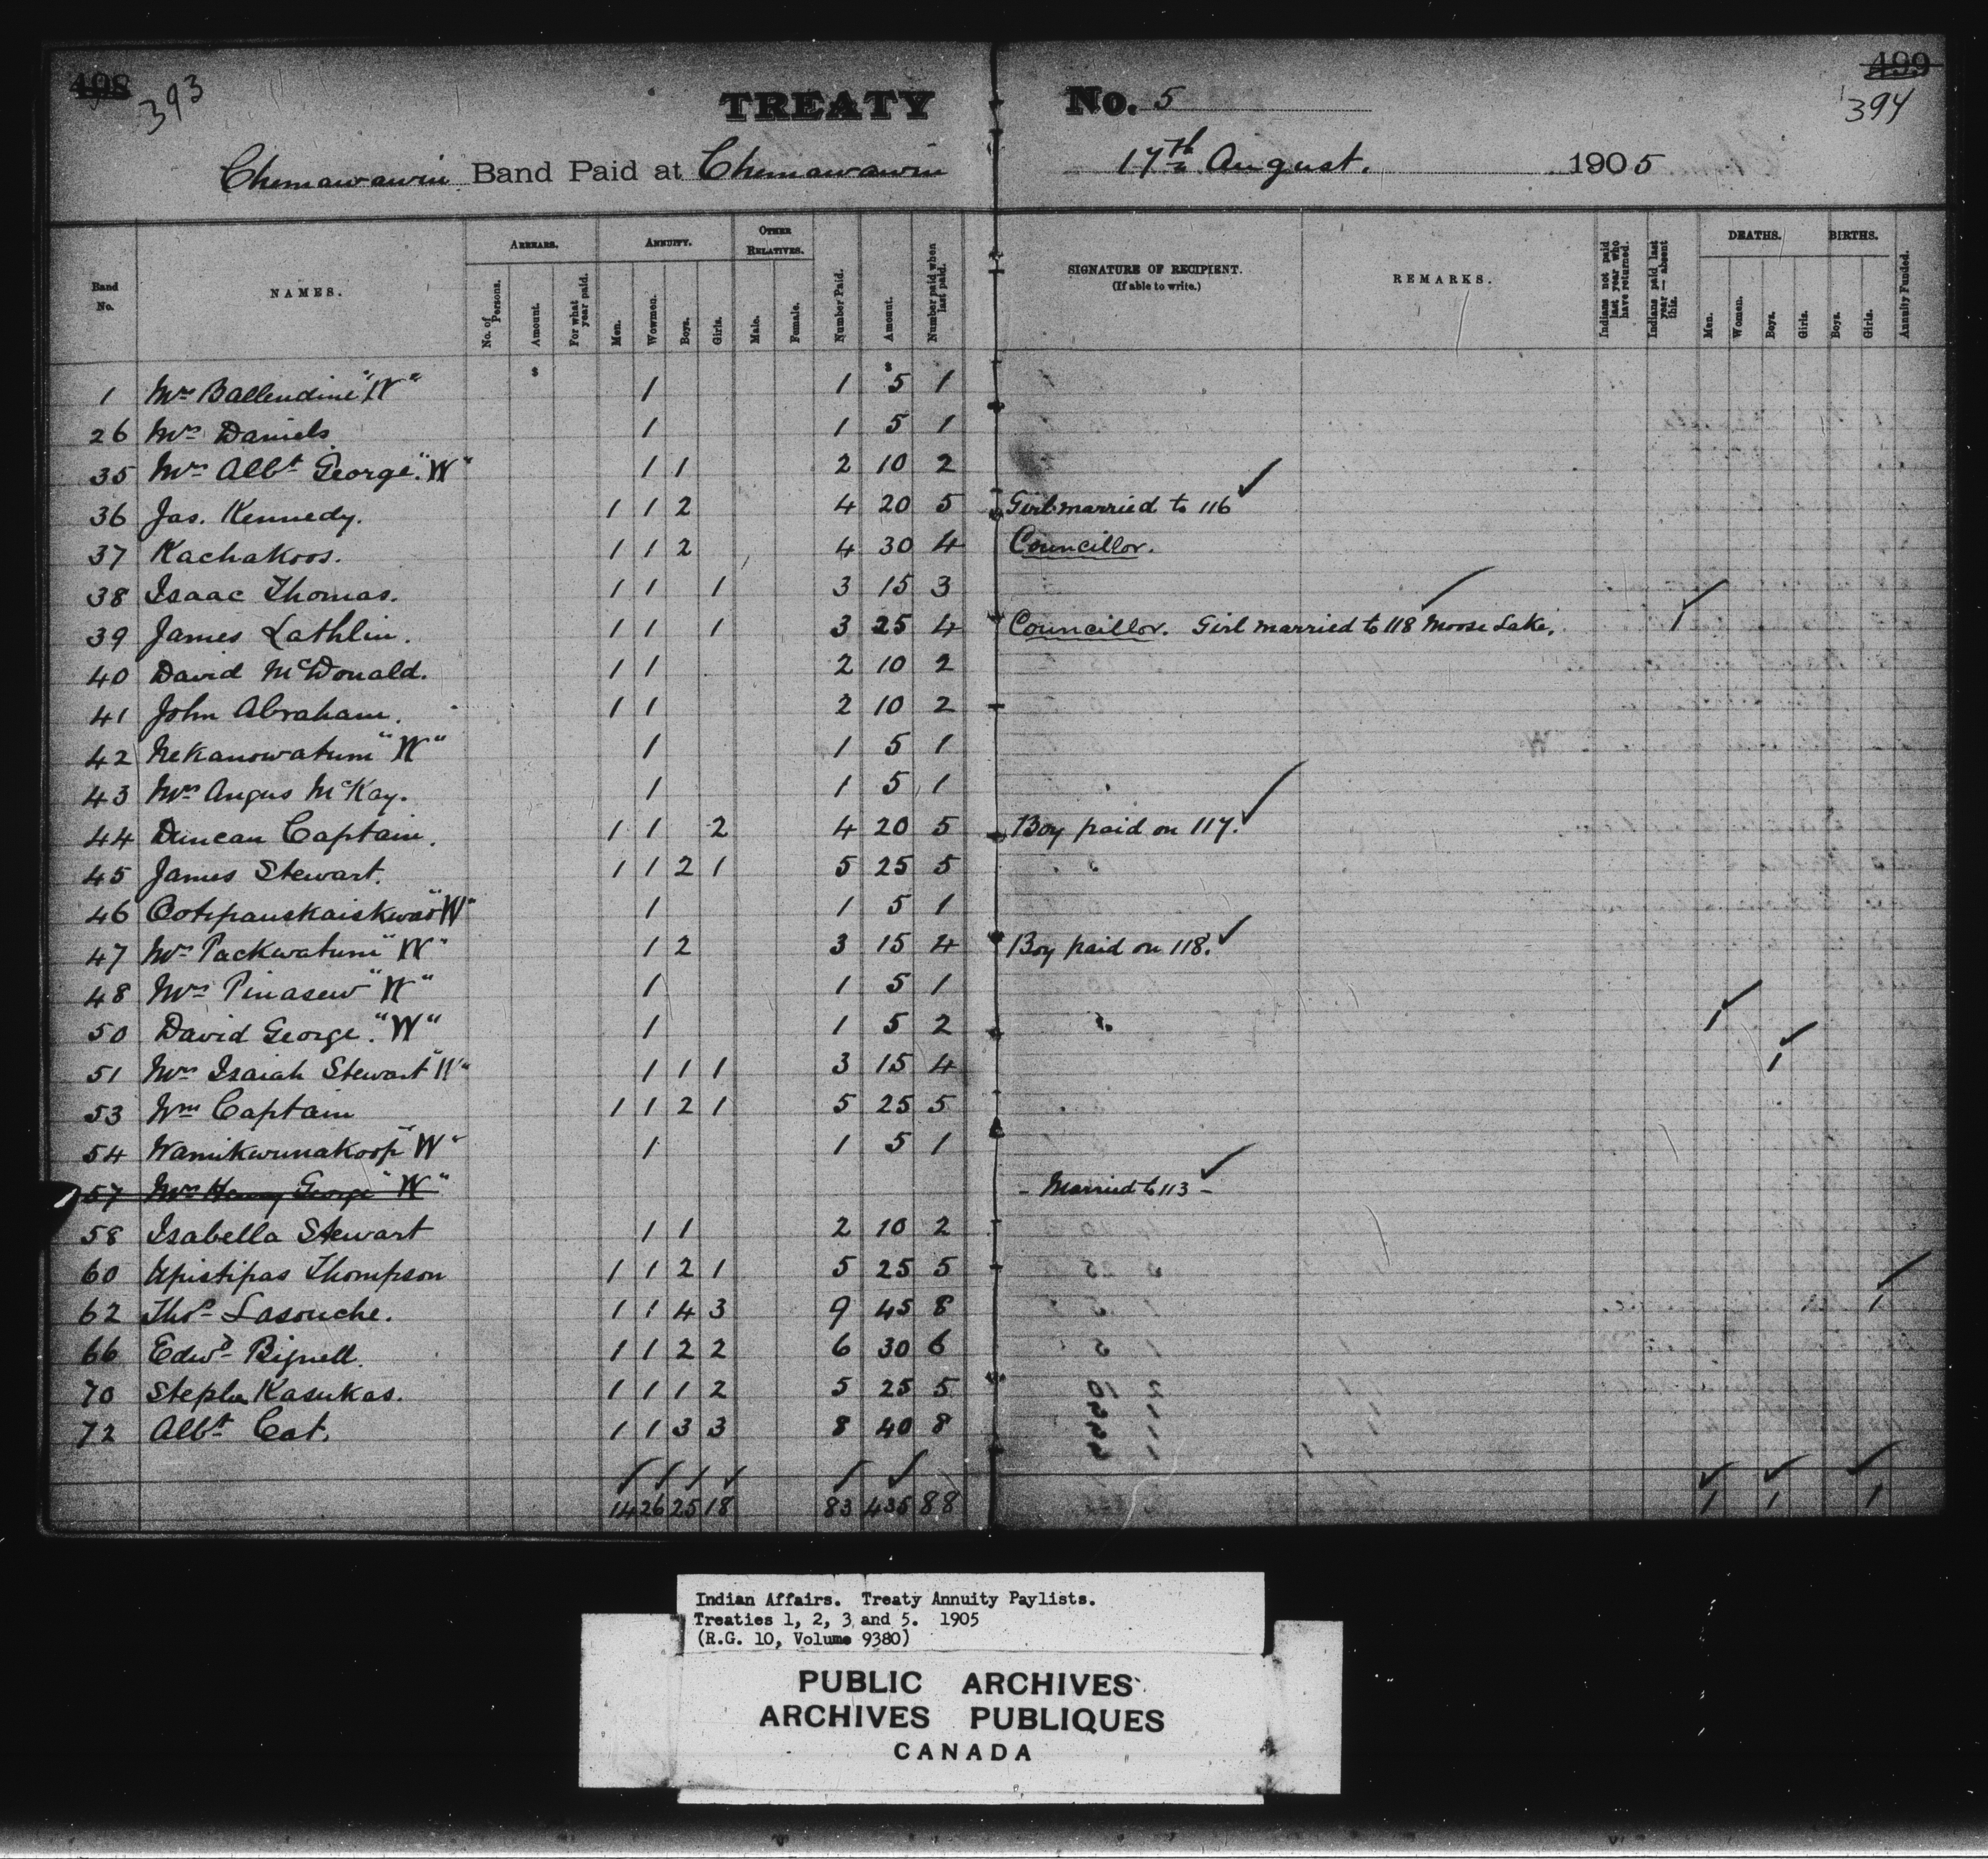 498 393 TREATY No. 5 499 394
Chemawawin Band Paid at Chemawawin 17th August. 1905
Band No. NAMES. ARREARS. No. of Persons. Amount. For what year paid. ANNUITY. Men. Wowmen. Boys. Girls. OTHER RELATIVES. Male. Female. Number Paid. Amount. Number paid when last paid. SIGNATURE OF RECIPIENT. (If able to write.) REMARKS. Indians not paid last year who have returned. Indians paid last year — absent this. DEATHS. Men. Women. Boys. Girls. BIRTHS. Boys. Girls. Annuity Funded.
$ $
1 Mrs Ballendine "W" 1 1 5 1
26 Mrs Daniels 1 1 5 1
35 Mrs Albt George. "W" 1 1 2 10 2
36 Jas. Kennedy. 1 1 2 4 20 5 Girl married to 116 ✓
37 Kachakoos. 1 1 2 4 30 4 Councillor.
38 Isaac Thomas. 1 1 1 3 15 3
39 James Lathlin. 1 1 1 3 25 4 Councillor. Girl married to 118 Moose Lake. ✓ 1 ✓
40 David McDonald. 1 1 2 10 2
41 John Abraham. 1 1 2 10 2
42 Nekanowatum "W" 1 1 5 1
43 Mrs Angus McKay. 1 1 5 1
44 Duncan Captain. 1 1 2 4 20 5 Boy paid on 117. ✓
45 James Stewart. 1 1 2 1 5 25 5
46 "W" 1 1 5 1
47 Mrs Packwatum "W" 1 2 3 15 4 Boy paid on 118. ✓
48 Mrs Pinasew "W" 1 1 5 1
50 David George. "W" 1 1 5 2 1 ✓
51 Mrs Isaiah Stewart "W" 1 1 1 3 15 4 1 ✓
53 Wm Captain 1 1 2 1 5 25 5
54 Wamikwunakoop "W" 1 1 5 1
57 Mrs Henry George "W" - Married to 113 - ✓
58 Isabella Stewart 1 1 2 10 2
60 Apistipas Thompson 1 1 2 1 5 25 5
62 Thos Lasouche. 1 1 4 3 9 45 8 1 ✓
66 Edwd Bignell. 1 1 2 2 6 30 6
70 Kasukas. 1 1 1 2 5 25 5
72 Albt Cat. 1 1 3 3 8 40 8
✓ ✓ ✓ ✓ ✓ ✓ ✓ ✓ ✓
14 26 25 18 83 435 88 1 1 1
Indian Affairs. Treaty Annuity Paylists.
Treaties 1, 2, 3 and 5. 1905
(R.G. 10, Volume 9380)
PUBLIC ARCHIVES
ARCHIVES PUBLIQUES
CANADA